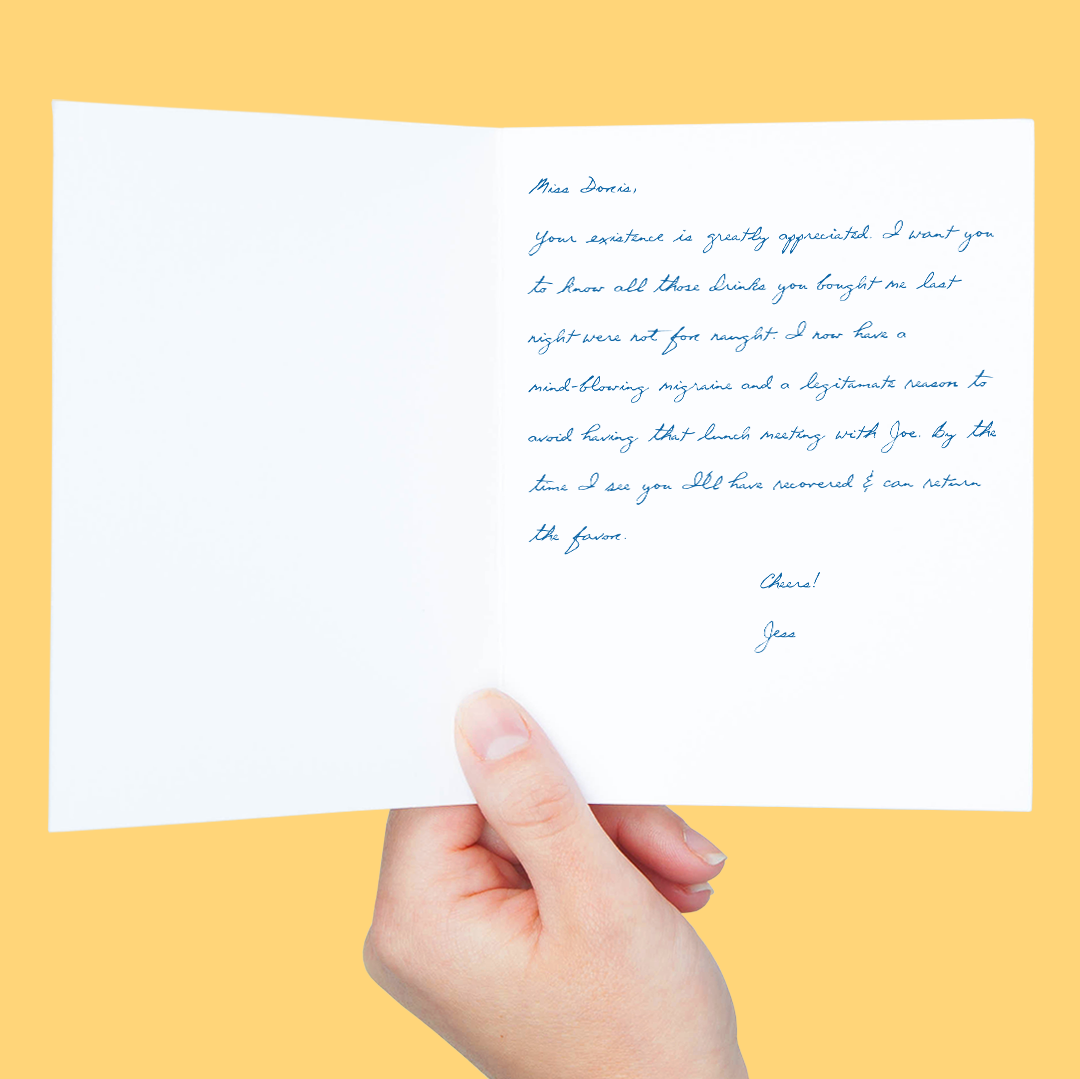 Miss Doreis,
Your existence is greatly appreciated. I want you
to know all those drinks you bought me last
night were not fore naught. I now have a
mind-blowing migraine and a legitamate reason to
avoid having that lunch meeting with Joe. By the
time I see you I'll have recovered & can return
the favor.
Cheers!
Jess